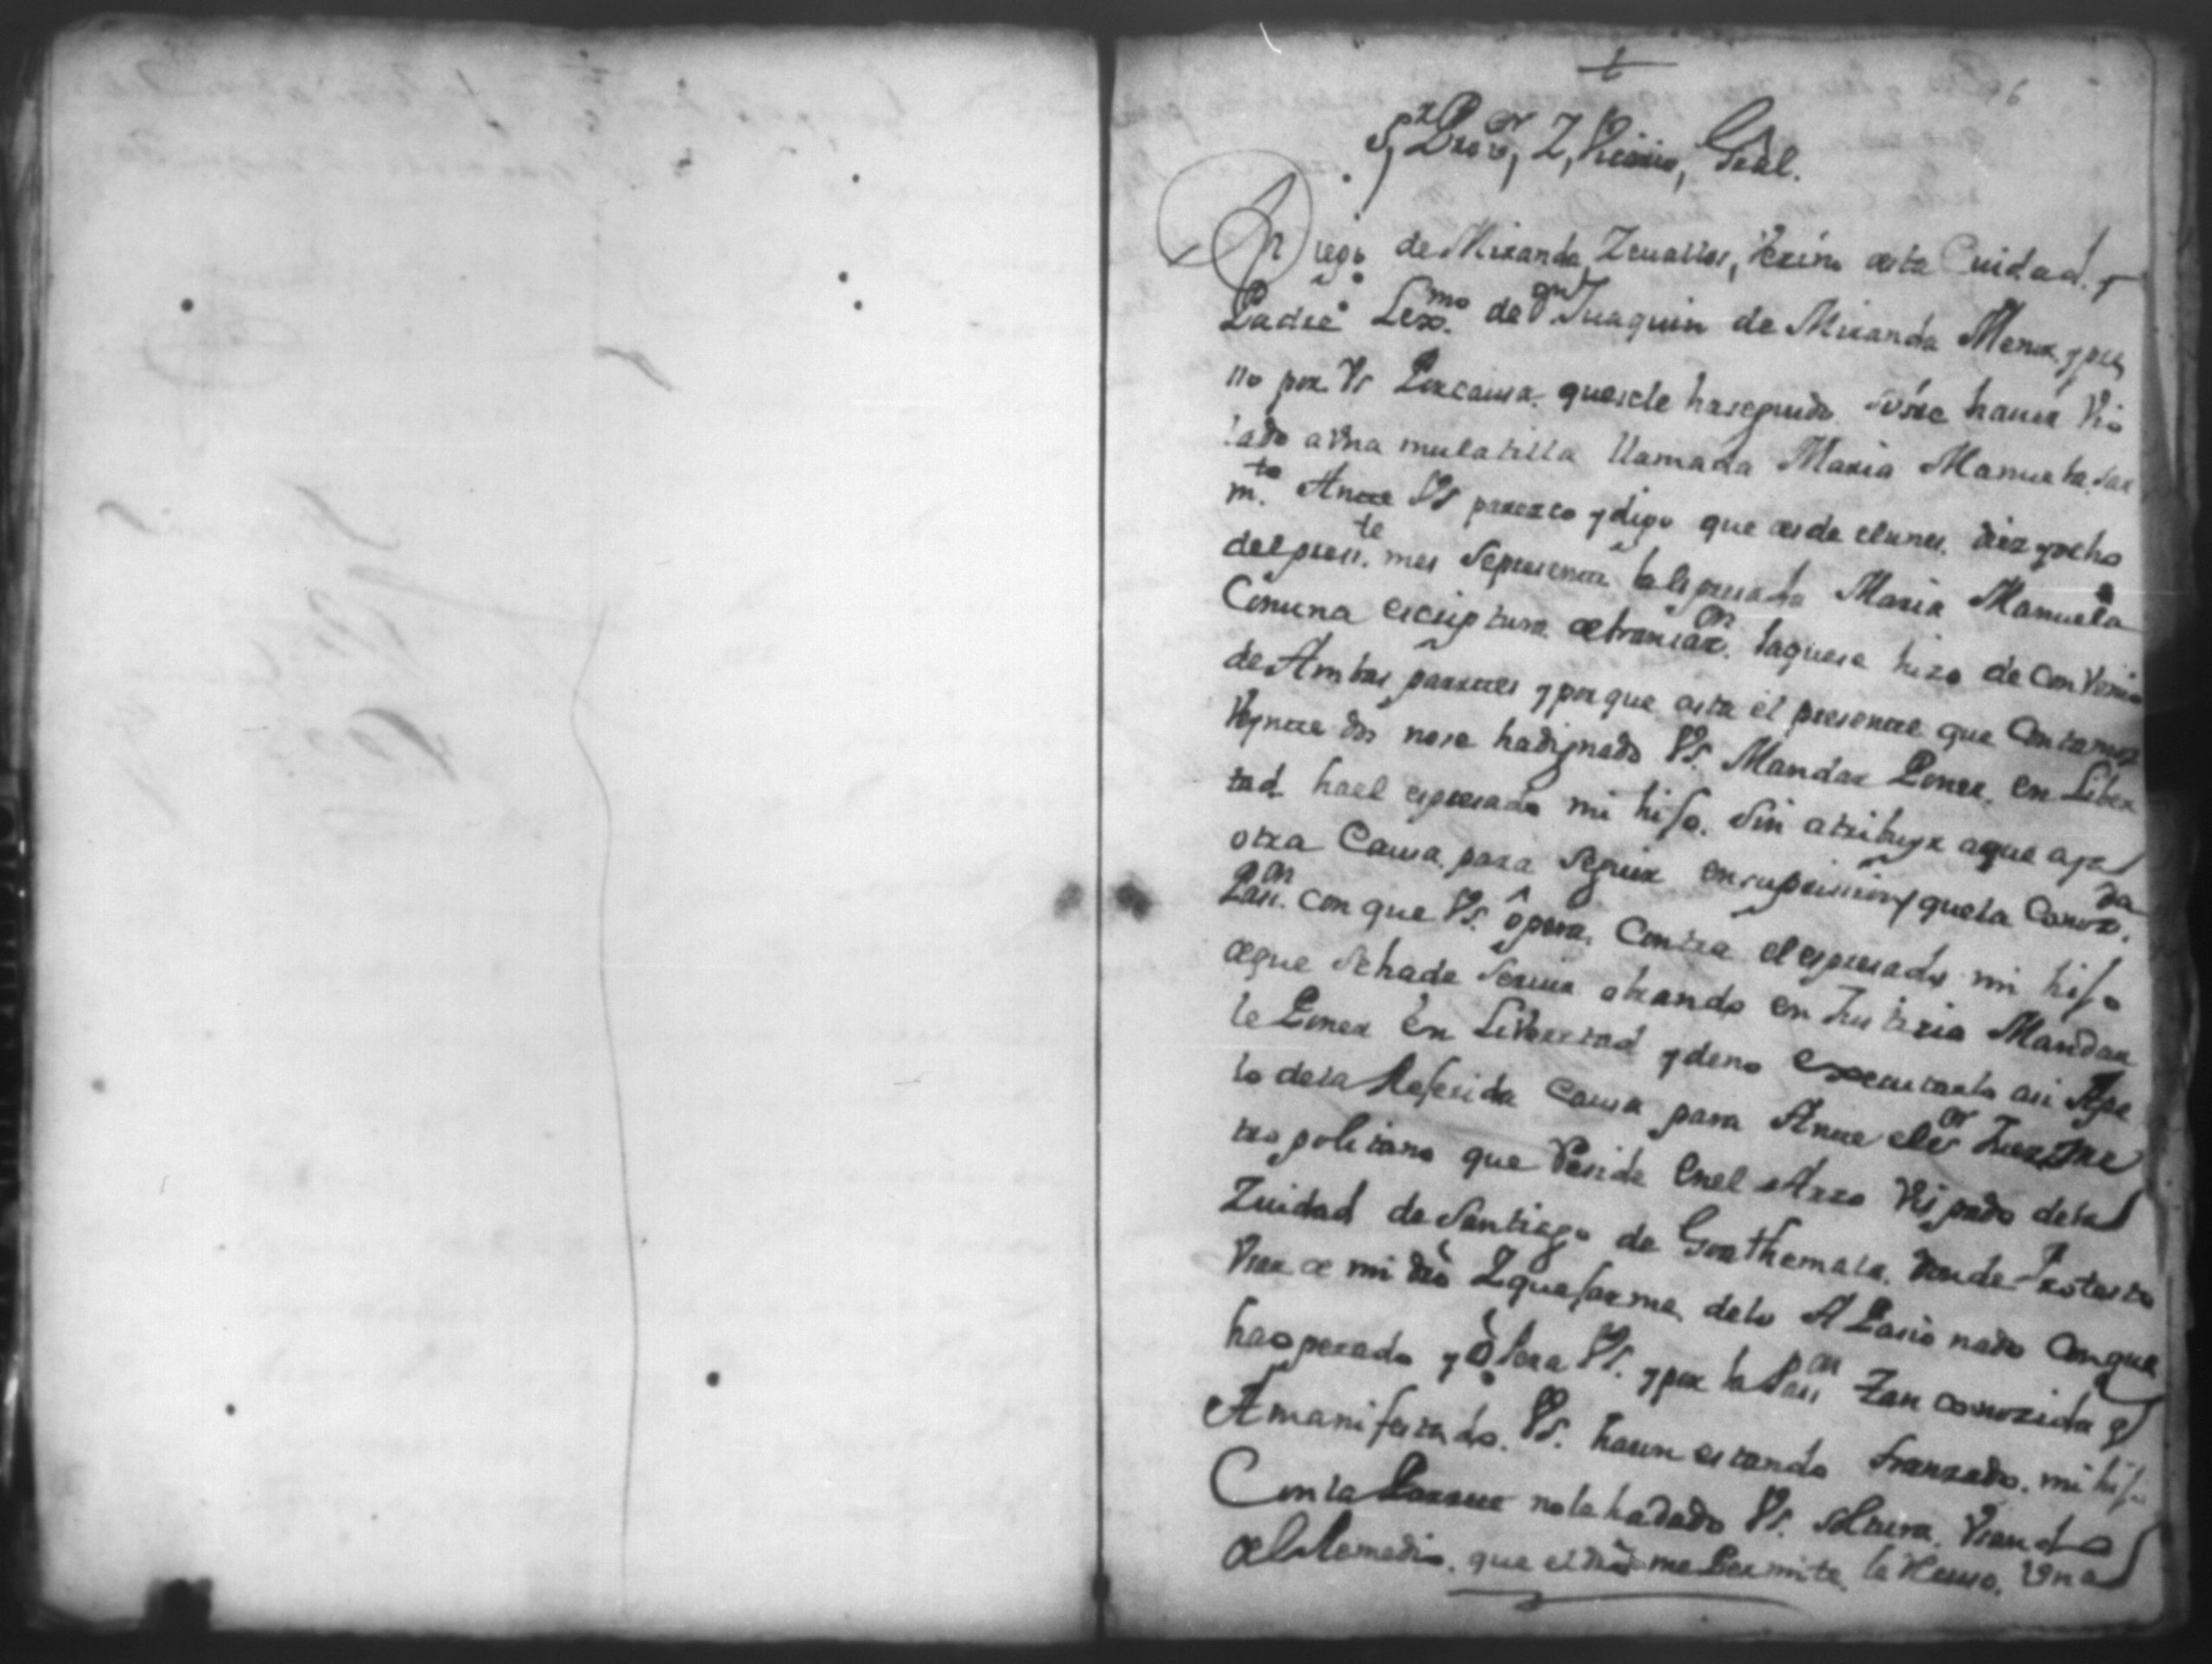 6
Sr. Pror. Z, Vicario, Gral.
Diego de Miranda Zeuallos, Vezino desta Cuidad. y
Padre Lexmo. de Juaquin de Miranda Menor, y pre
so por Vs Por causa. quesele ha seguido. sobre hauer Vio
lado a Vna mulatilla llamada Maria Manuela. Sar
mto. Ante VS paresco y digo que desde el lunes. diez y ocho
del preste. mes Sepresentò la espresada Maria Manuela
Con una escriptura de transaon. la que se hizo de con Venio
de Ambas parttes y por que asta el presente que Contamos
Veyntte dos nose hadignado VS. Mandar Poner. en Liber
tad hael espresado mi hijo. Sin atribuyr aque aya
otra Causa. para Seguir en suprision y quela Conozda.
Pasn. con que VS. ôpera. Contra el espresado mi hijo
deque Sehade Seruir obrando en Justizia Mandar
le Poner en Livertad y deno executarlo asi Ape
lo dela Referida Causa para Ante el Sr Juez Me
tropolitano que Reside enel Arzo Vispado dela
Zuidad de Santiago de Goathemala. donde Protesto
Vsar de mi dro Zquejarme delo A Pasio nado Conque
haoperado y ôpera VS. y por la Pasn Zan conozida q
A manifestado. VS. haun estando tranzado. mi hijo
Con la Partte no la hadado VS. soltura. Vsando
del Remedio. que el dro me Permite. le Recuso. Vna